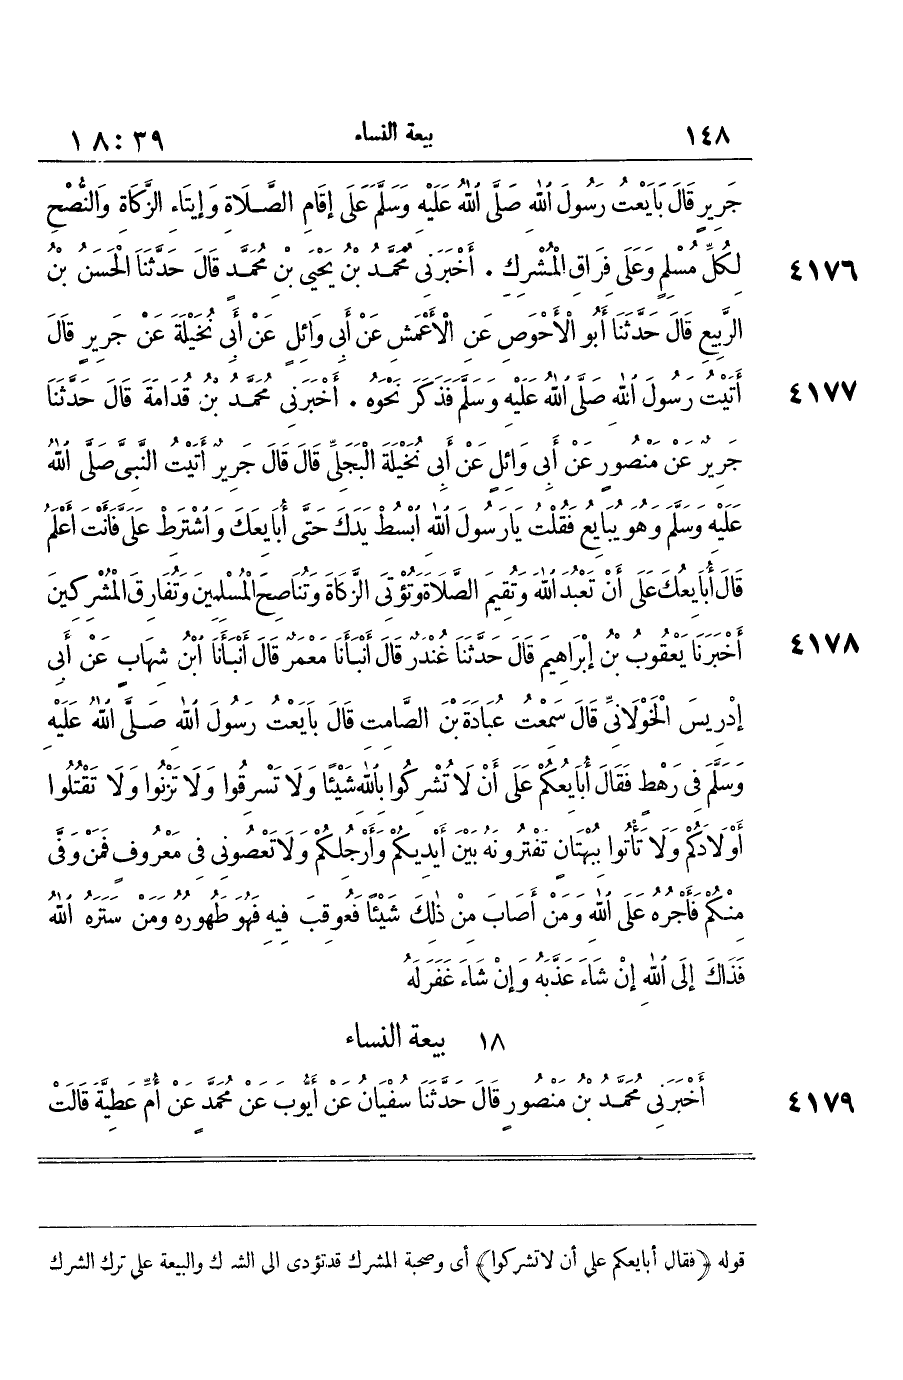 ١٤٨ بيعة النساء ٣٩ : ١٨
جَرِيرٍ قَالَ بَايَعْتُ رَسُولَ اللهِ صَلَّى اللهُ عَلَيْهِ وَسَلَّمَ عَلَى إِقَامِ الصَّلَاةِ وَإِيتَاءِ الزَّكَاةِ وَالنُّصْحِ
٤١٧٦ لِكُلِّ مُسْلِمٍ وَعَلَى فِرَاقِ الْمُشْرِكِ . أَخْبَرَنِي مُحَمَّدُ بْنُ يَحْيَى بْنِ مُحَمَّدٍ قَالَ حَدَّثَنَا الْحَسَنُ بْنُ
الرَّبِيعِ قَالَ حَدَّثَنَا أَبُو الْأَحْوَصِ عَنِ الْأَعْمَشِ عَنْ أَبِي وَائِلٍ عَنْ أَبِي نُخَيْلَةَ عَنْ جَرِيرٍ قَالَ
٤١٧٧ أَتَيْتُ رَسُولَ اللهِ صَلَّى اللهُ عَلَيْهِ وَسَلَّمَ فَذَكَرَ نَحْوَهُ . أَخْبَرَنِي مُحَمَّدُ بْنُ قُدَامَةَ قَالَ حَدَّثَنَا
جَرِيرٌ عَنْ مَنْصُورٍ عَنْ أَبِي وَائِلٍ عَنْ أَبِي نُخَيْلَةَ الْبَجَلِيِّ قَالَ قَالَ جَرِيرٌ أَتَيْتُ النَّبِيَّ صَلَّى اللهُ
عَلَيْهِ وَسَلَّمَ وَهُوَ يُبَايِعُ فَقُلْتُ يَا رَسُولَ اللهِ ابْسُطْ يَدَكَ حَتَّى أُبَايِعَكَ وَاشْتَرِطْ عَلَيَّ فَأَنْتَ أَعْلَمُ
قَالَ أُبَايِعُكَ عَلَى أَنْ تَعْبُدَ اللهَ وَتُقِيمَ الصَّلَاةَ وَتُؤْتِيَ الزَّكَاةَ وَتُنَاصِحَ الْمُسْلِمِينَ وَتُفَارِقَ الْمُشْرِكِينَ
٤١٧٨ أَخْبَرَنَا يَعْقُوبُ بْنُ إِبْرَاهِيمَ قَالَ حَدَّثَنَا غُنْدَرٌ قَالَ أَنْبَأَنَا مَعْمَرٌ قَالَ أَنْبَأَنَا ابْنُ شِهَابٍ عَنْ أَبِي
إِدْرِيسَ الْخَوْلَانِيِّ قَالَ سَمِعْتُ عُبَادَةَ بْنَ الصَّامِتِ قَالَ بَايَعْتُ رَسُولَ اللهِ صَلَّى اللهُ عَلَيْهِ
وَسَلَّمَ فِي رَهْطٍ فَقَالَ أُبَايِعُكُمْ عَلَى أَنْ لَا تُشْرِكُوا بِاللهِ شَيْئًا وَلَا تَسْرِقُوا وَلَا تَزْنُوا وَلَا تَقْتُلُوا
أَوْلَادَكُمْ وَلَا تَأْتُوا بِبُهْتَانٍ تَفْتَرُونَهُ بَيْنَ أَيْدِيكُمْ وَأَرْجُلِكُمْ وَلَا تَعْصُونِي فِي مَعْرُوفٍ فَمَنْ وَفَى
مِنْكُمْ فَأَجْرُهُ عَلَى اللهِ وَمَنْ أَصَابَ مِنْ ذٰلِكَ شَيْئًا فَعُوقِبَ فِيهِ فَهُوَ طَهُورُهُ وَمَنْ سَتَرَهُ اللهُ
فَذَاكَ إِلَى اللهِ إِنْ شَاءَ عَذَّبَهُ وَإِنْ شَاءَ غَفَرَ لَهُ
١٨ بيعة النساء
٤١٧٩ أَخْبَرَنِي مُحَمَّدُ بْنُ مَنْصُورٍ قَالَ حَدَّثَنَا سُفْيَانُ عَنْ أَيُّوبَ عَنْ مُحَمَّدٍ عَنْ أُمِّ عَطِيَّةَ قَالَتْ
قوله ﴿فقال أبايعكم على أن لا تشركوا﴾ أى وصحبة المشرك قد تؤدى الى الشرك والبيعة على ترك الشرك